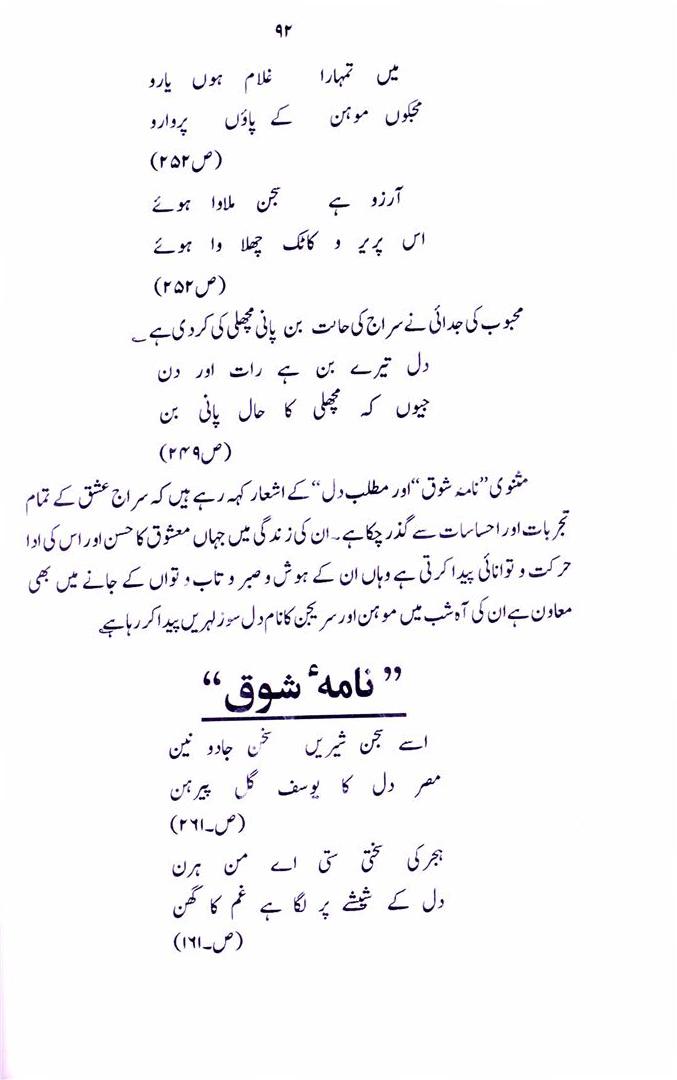 ۹۲
میں تمہارا غلام ہوں یارو
مجکوں موہن کے پاؤں پروارو
(ص۲۵۲)
آرزو ہے سجن ملاوا ہوئے
اس پریر و کاٹک چھلا وا ہوئے
(ص۲۵۲)
محبوب کی جدائی نے سراج کی حالت بن پانی مچھلی کی کردی ہے
دل تیرے بن ہے رات اور دن
جیوں کہ مچھلی کا حال پانی بن
(ص۲۴۹)
مثنوی ”نامۂ شوق“ اور مطلب دل“ کے اشعار کہہ رہے ہیں کہ سراج عشق کے تمام
تجربات اور احساسات سے گذر چکا ہے۔ ان کی زندگی میں جہاں معشوق کا حسن اور اس کی ادا
حرکت و توانائی پیدا کرتی ہے وہاں ان کے ہوش و صبر و تاب و تواں کے جانے میں بھی
معاون ہے ان کی آہ شب میں موہن اور سریجن کا نام دل سوز لہریں پیدا کر رہا ہے
”نامۂ شوق“
اے سجن شیریں سخن جادو نین
مصر دل کا یوسف گل پیرہن
(ص۔۲۶۱)
ہجر کی سختی ستی اے من ہرن
دل کے شیشے پر لگا ہے غم کا گھن
(ص۔۱۶۱)